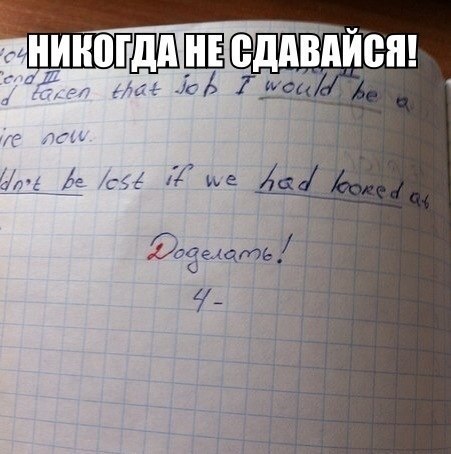 НИКОГДА НЕ СДАВАЙСЯ!
ond III
d taken that job I would be a
ire now.
ldn't be lost if we had looked at
Доделать!
4-